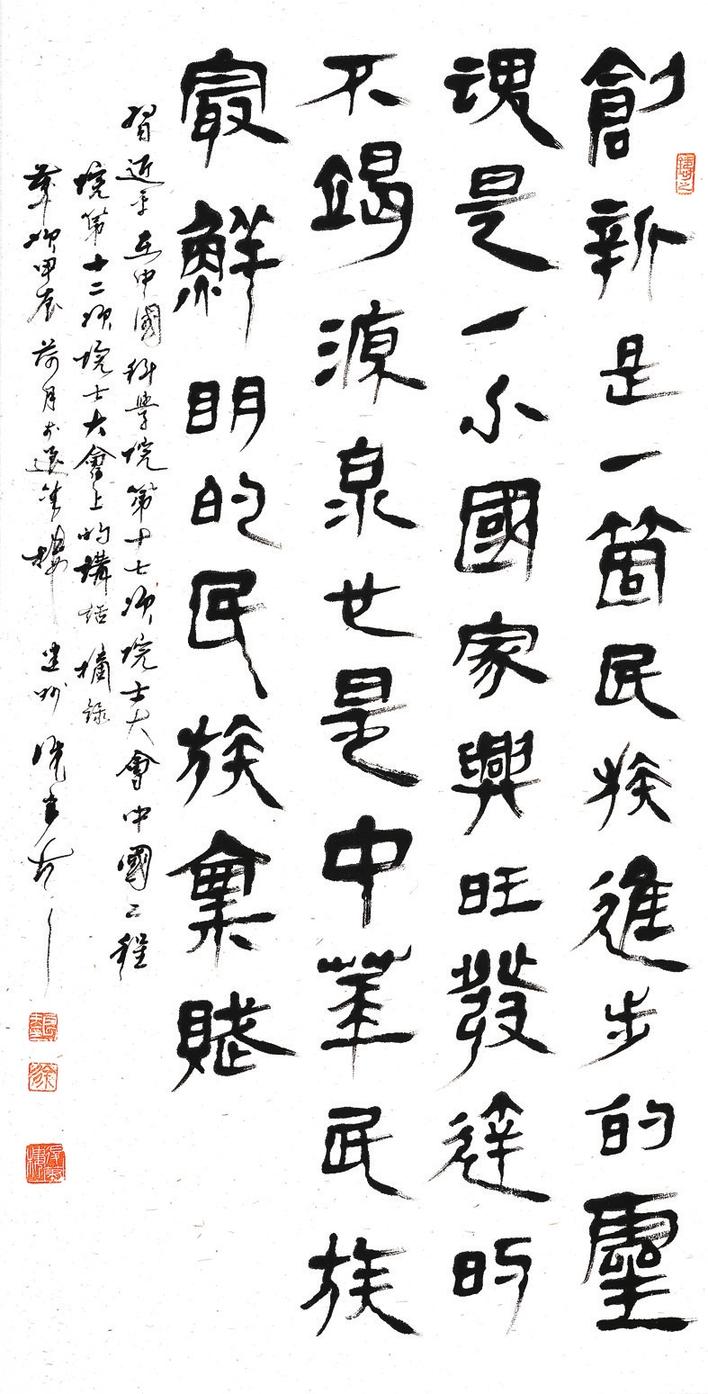 創新是一箇民族進步的靈
魂是一个國家興旺發達的
不竭源泉也是中華民族
最鮮明的民族稟賦
習近平在中國科學院第十七次院士大會中國工程
院第十二次院士大會上的講話摘錄
歲次甲辰荷月於樓建州